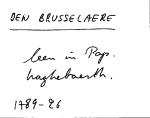 DEN BRUSSELAERE
leen in Pops.
haghebaerth.
1789-26